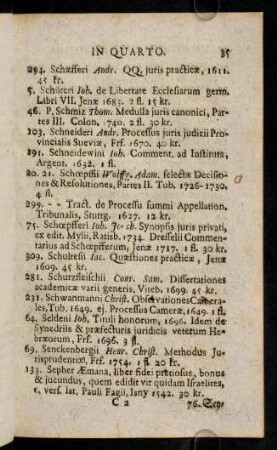 IN QUARTO. 35
294. Schœfferi Andr. QQ. juris practicæ, 1611.
45 kr.
5. Schilteri Ioh. de Libertate Ecclesiarum germ.
Libri VII. Jenæ 1683. 2 fl. 15 kr.
46. P. Schmiz Thom. Medulla juris canonici, Par-
tes III. Colon. 1740. 2 fl. 30 kr.
103. Schneideri Andr. Processus juris judicii Pro-
vincialis Sueviæ, Frf. 1670. 40 kr.
191. Schneidewini Ioh. Comment. ad Instituta,
Argent. 1632. 1 fl.
20. 21. Schœpffii Wolffg. Adam. selectæ Decisio-
nes & Resolutiones, Partes II. Tub. 1726-1730.
4 fl.
299. - - Tract. de Processu summi Appellation.
Tribunalis, Stuttg. 1627. 12 kr.
75. Schœpfferi Ioh. Joch. Synopsis juris privati,
ex edit. Mysii, Ratisb. 1734. Dresselii Commen-
tarius ad Schœpfferum, Jenæ 1717. 1 fl. 30 kr.
309. Schultesii Iac. Quæstiones practicæ, Jenæ
1609. 45 kr.
281. Schurzfleischii Conr. Sam. Dissertationes
academicæ varii generis, Viteb. 1699. 45 kr.
231. Schwanmanni Christ. Observationes Camera-
les, Tub. 1649. ej. Processus Cameræ, 1649. 1 fl.
64. Seldeni Ioh. Tituli honorum, 1696. Idem de
Synedriis & præfecturis juridicis veterum He-
bræorum, Frf. 1696. 3 fl.
69. Senckenbergii Henr. Christ. Methodus Ju-
risprudentiæ, Frf. 1754. 1 fl. 20 kr.
133. Sepher Æmana, liber fidei pretiosus, bonus
& jucundus, quem edidit vir quidam Israelites,
c. vers. lat. Pauli Fagii, Isny 1542. 30 kr.
C 2 76. Sey-